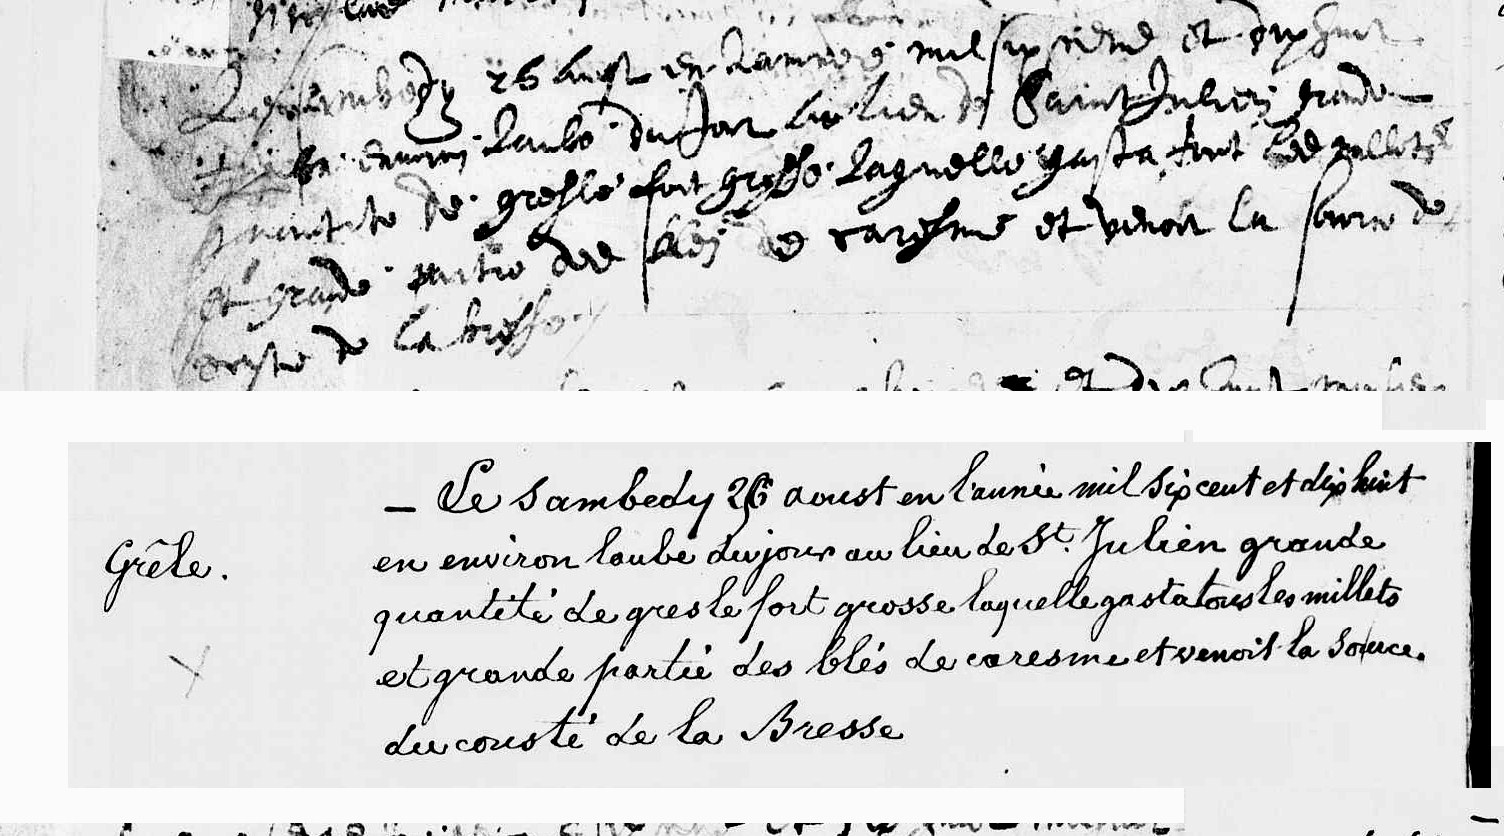 Le sambedy 26 aust en lannee mil six cent et dixhuit
environ laube du jour au lieu de Saint Julien grande
quantite de gresle fort grosse laquelle gasta tout les millets
et grande partie des bleds de caresme et venoit la
de la bresse
— Le sambedy 26 aoust en l'année mil six cent et dix huit
Grêle.
en environ laube du jour au lieu de St. Julien grande
quantité de gresle fort grosse laquelle gasta tous les millets
et grande partie des blés de caresme et venoit la source.
du cousté de la Bresse